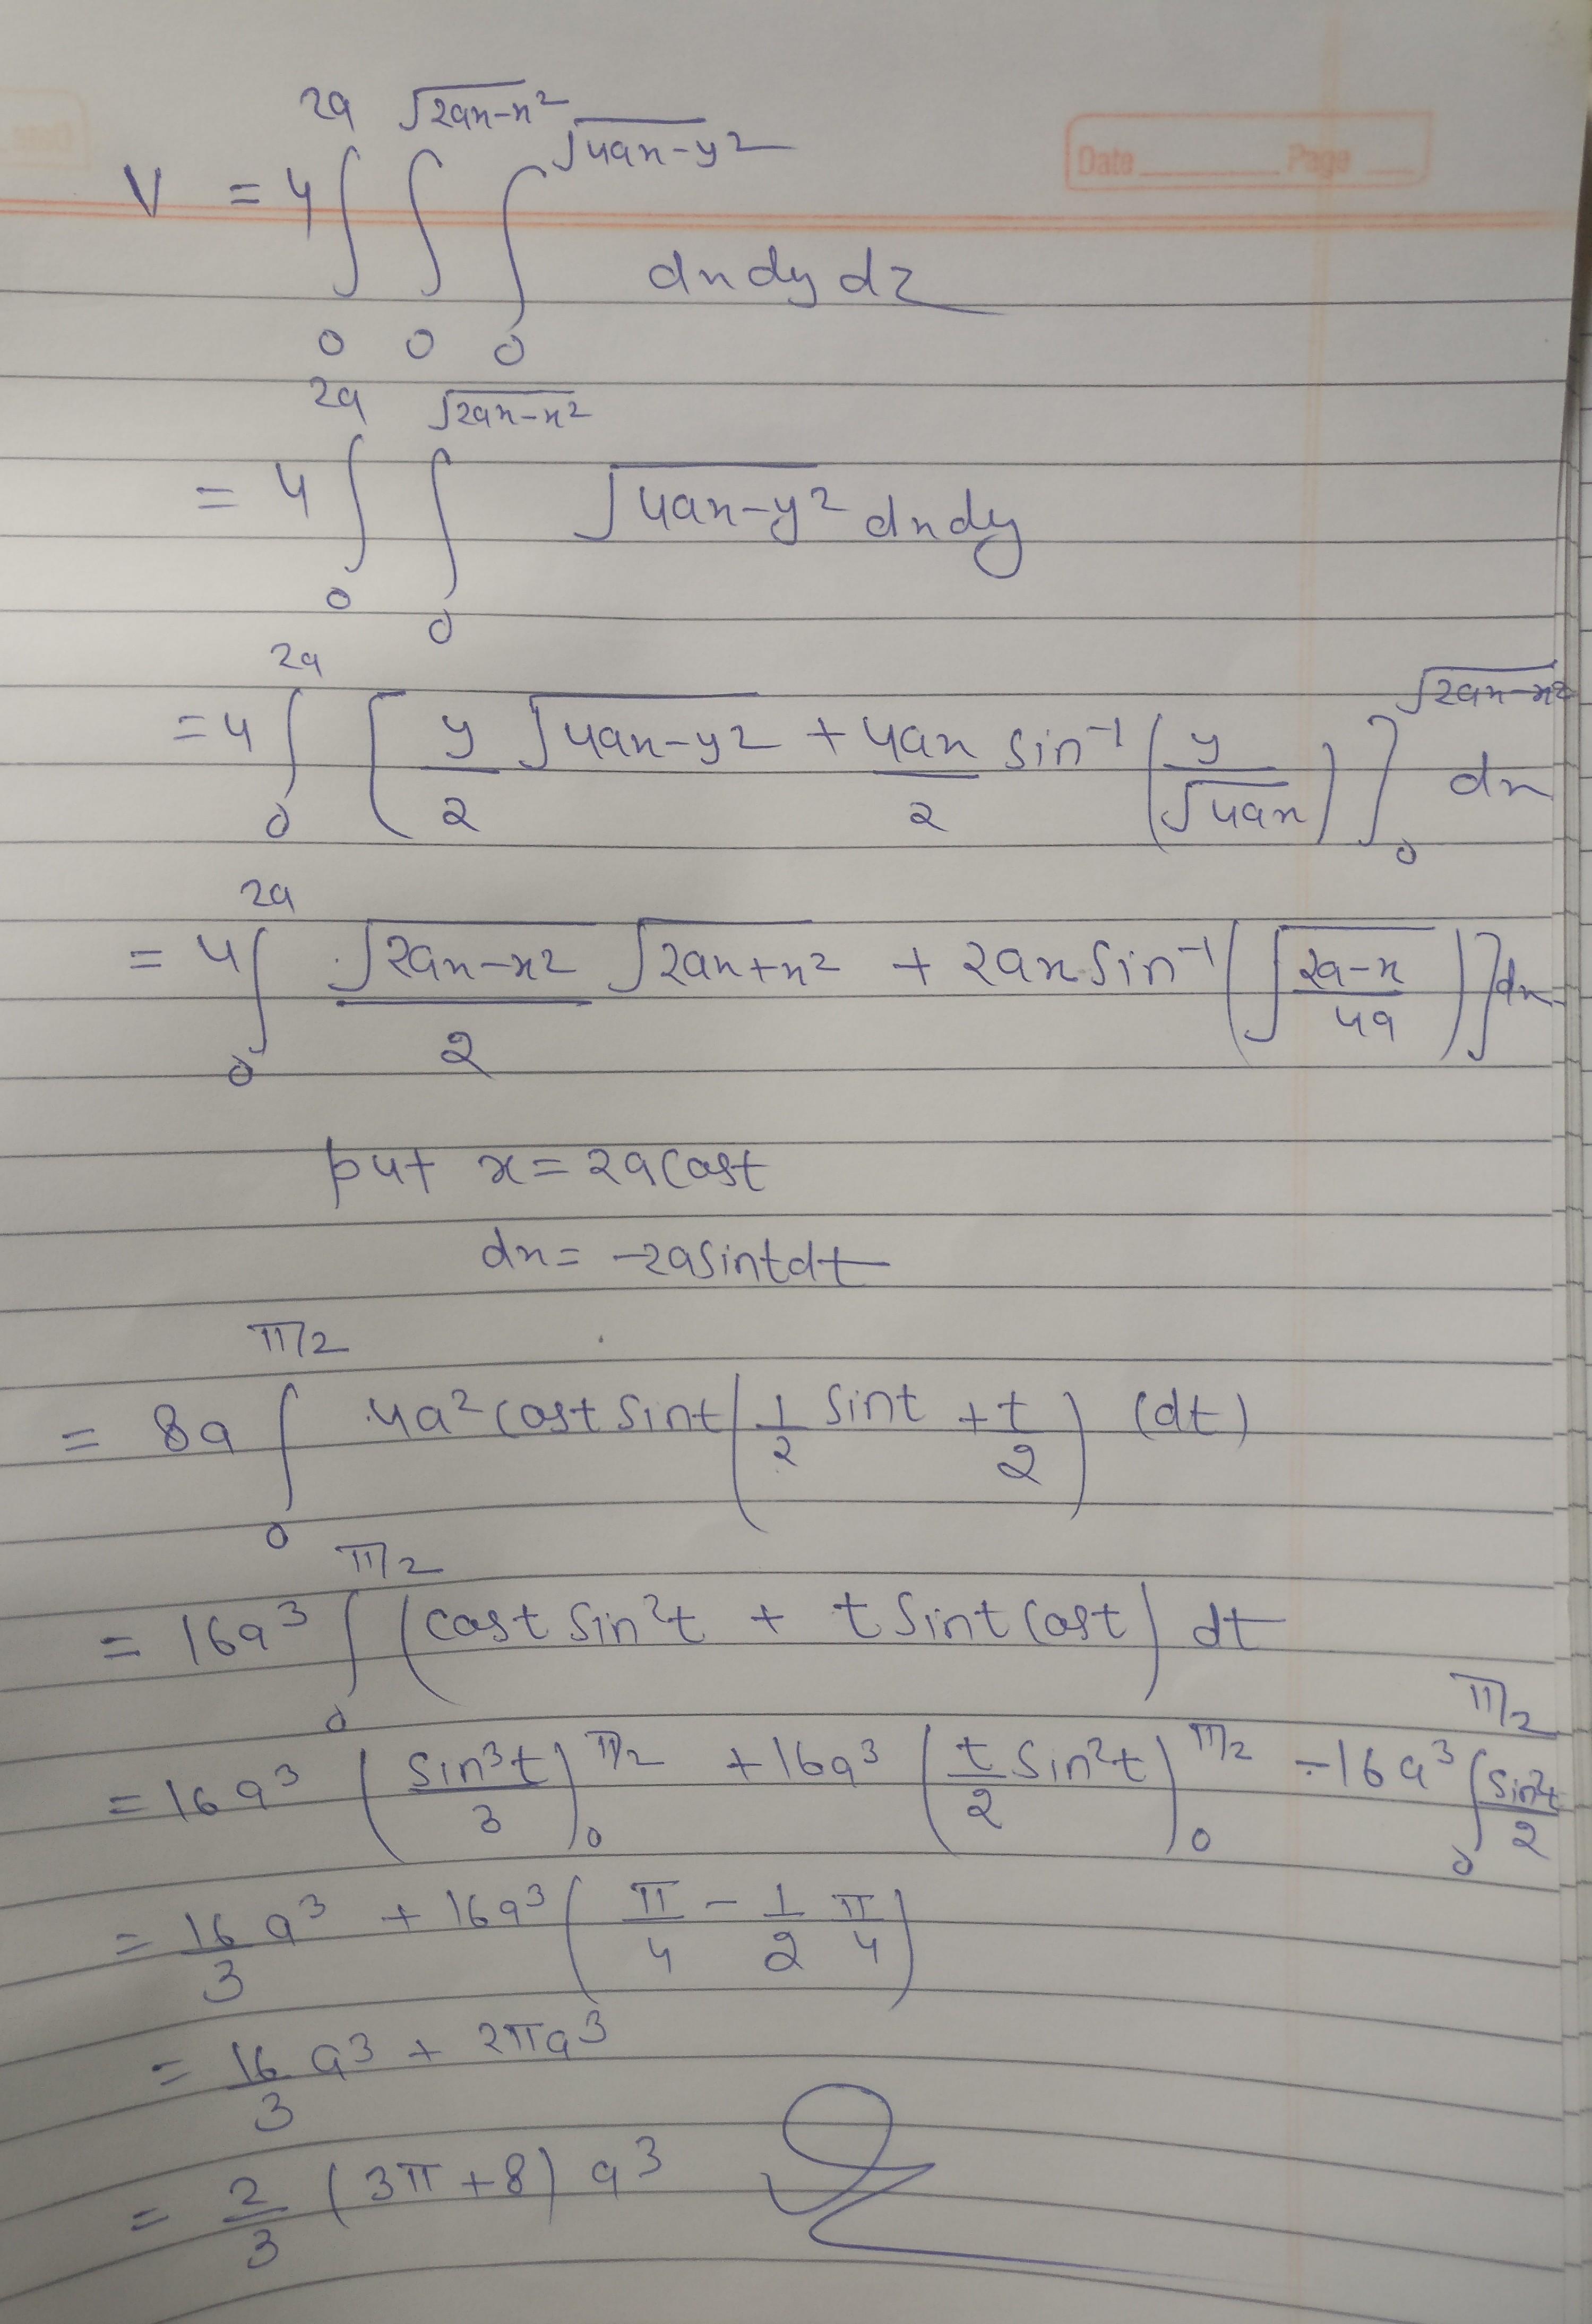 Date ______ Page ___
V = 4 ∫₀^{2a} ∫₀^{√(2ax-x²)} ∫₀^{√(4ax-y²)} dx dy dz
= 4 ∫₀^{2a} ∫₀^{√(2ax-x²)} √(4ax-y²) dx dy
= 4 ∫₀^{2a} [ y/2 √(4ax-y²) + 4ax/2 sin⁻¹( y/√(4ax) ) ]₀^{√(2ax-x²)} dx
= 4 ∫₀^{2a} √(2ax-x²)/2 √(2ax+x²) + 2ax sin⁻¹( √((2a-x)/4a) ) ] dx
put x = 2a cost
dx = -2a sint dt
= 8a ∫₀^{π/2} 4a² cost sint ( 1/2 sint + t/2 ) (dt)
= 16a³ ∫₀^{π/2} ( cost sin²t + t sint cost ) dt
= 16a³ ( sin³t/3 )₀^{π/2} + 16a³ ( t/2 sin²t )₀^{π/2} - 16a³ ∫₀^{π/2} sin²t/2
= 16/3 a³ + 16a³ ( π/4 - 1/2 π/4 )
= 16/3 a³ + 2πa³
= 2/3 (3π + 8) a³